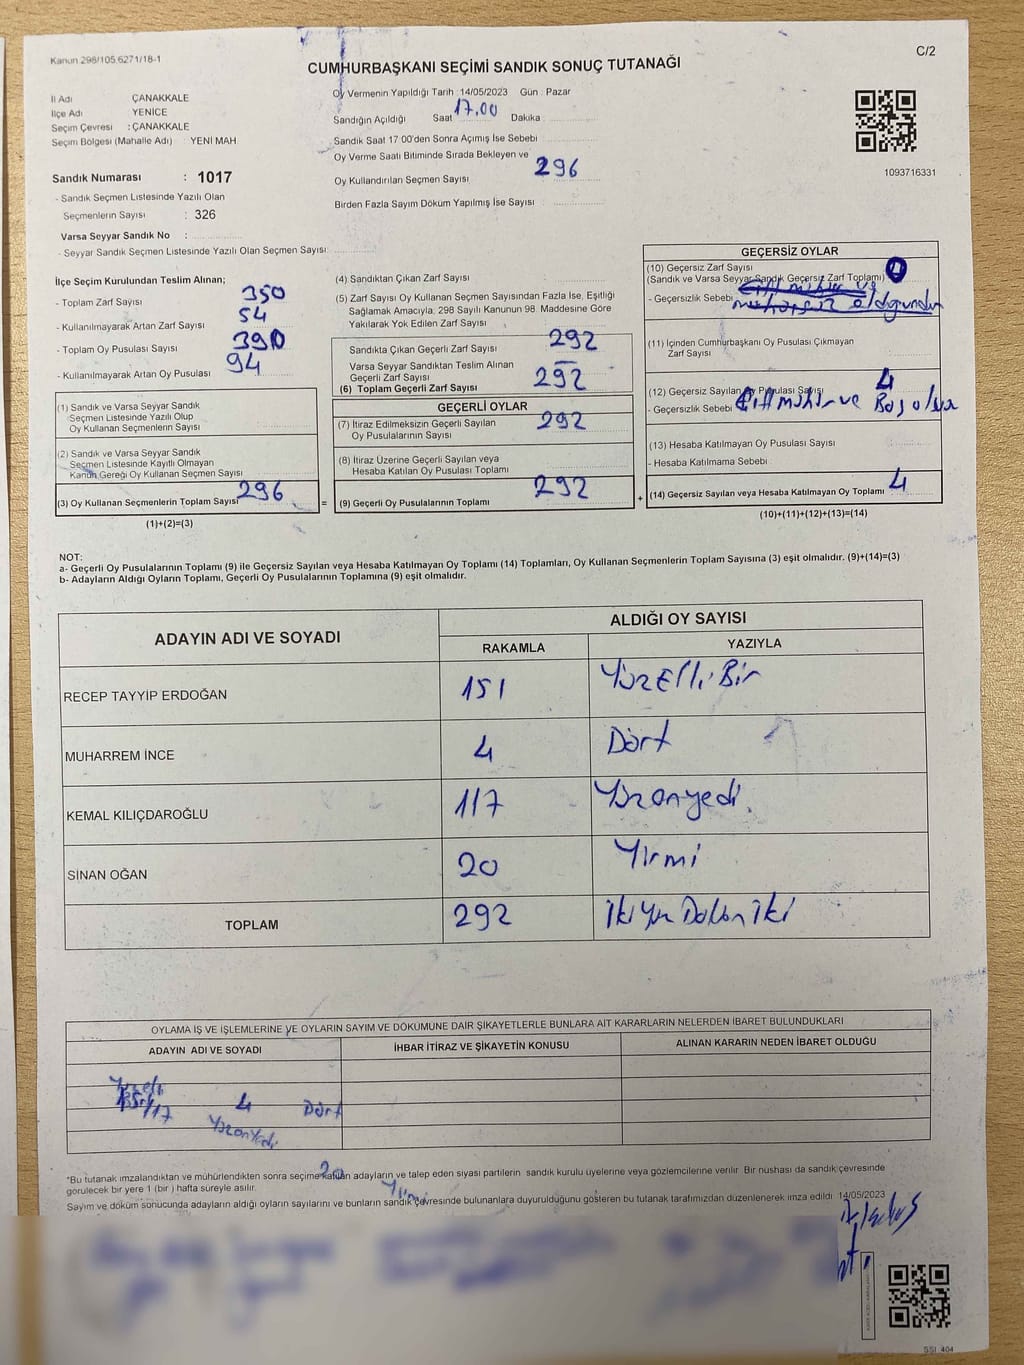 Kanun 298/105.6271/18-1
C/2
CUMHURBAŞKANI SEÇİMİ SANDIK SONUÇ TUTANAĞI
İl Adı ÇANAKKALE
İlçe Adı YENİCE
Seçim Çevresi : ÇANAKKALE
Seçim Bölgesi (Mahalle Adı) YENİ MAH
Sandık Numarası : 1017
- Sandık Seçmen Listesinde Yazılı Olan
Seçmenlerin Sayısı : 326
Varsa Seyyar Sandık No :
- Seyyar Sandık Seçmen Listesinde Yazılı Olan Seçmen Sayısı:
Oy Vermenin Yapıldığı Tarih : 14/05/2023 Gün : Pazar
Sandığın Açıldığı Saat 17.00 Dakika
Sandık Saat 17:00'den Sonra Açımış İse Sebebi
Oy Verme Saati Bitiminde Sırada Bekleyen ve
Oy Kullandırılan Seçmen Sayısı 296
Birden Fazla Sayım Döküm Yapılmış İse Sayısı
1093716331
İlçe Seçim Kurulundan Teslim Alınan;
- Toplam Zarf Sayısı 350
- Kullanılmayarak Artan Zarf Sayısı 54
- Toplam Oy Pusulası Sayısı 390
- Kullanılmayarak Artan Oy Pusulası 94
(1) Sandık ve Varsa Seyyar Sandık
Seçmen Listesinde Yazılı Olup
Oy Kullanan Seçmenlerin Sayısı
(2) Sandık ve Varsa Seyyar Sandık
Seçmen Listesinde Kayıtlı Olmayan
Kanun Gereği Oy Kullanan Seçmen Sayısı
(3) Oy Kullanan Seçmenlerin Toplam Sayısı 296
(1)+(2)=(3)
(4) Sandıktan Çıkan Zarf Sayısı
(5) Zarf Sayısı Oy Kullanan Seçmen Sayısından Fazla İse, Eşitliği
Sağlamak Amacıyla, 298 Sayılı Kanunun 98. Maddesine Göre
Yakılarak Yok Edilen Zarf Sayısı
Sandıkta Çıkan Geçerli Zarf Sayısı 292
Varsa Seyyar Sandıktan Teslim Alınan
Geçerli Zarf Sayısı —
(6) Toplam Geçerli Zarf Sayısı 292
GEÇERLİ OYLAR
(7) İtiraz Edilmeksizin Geçerli Sayılan
Oy Pusulalarının Sayısı 292
(8) İtiraz Üzerine Geçerli Sayılan veya
Hesaba Katılan Oy Pusulası Toplamı
= (9) Geçerli Oy Pusulalarının Toplamı 292
GEÇERSİZ OYLAR
(10) Geçersiz Zarf Sayısı
(Sandık ve Varsa Seyyar Sandık Geçersiz Zarf Toplamı) 0
- Geçersizlik Sebebi Çift mühür ve
mühürsüz olduğundan
(11) İçinden Cumhurbaşkanı Oy Pusulası Çıkmayan
Zarf Sayısı
(12) Geçersiz Sayılan Oy Pusulası Sayısı 4
- Geçersizlik Sebebi Çift mühür ve Boş olua
(13) Hesaba Katılmayan Oy Pusulası Sayısı
- Hesaba Katılmama Sebebi
+ (14) Geçersiz Sayılan veya Hesaba Katılmayan Oy Toplamı 4
(10)+(11)+(12)+(13)=(14)
NOT:
a- Geçerli Oy Pusulalarının Toplamı (9) ile Geçersiz Sayılan veya Hesaba Katılmayan Oy Toplamı (14) Toplamları, Oy Kullanan Seçmenlerin Toplam Sayısına (3) eşit olmalıdır. (9)+(14)=(3)
b- Adayların Aldığı Oyların Toplamı, Geçerli Oy Pusulalarının Toplamına (9) eşit olmalıdır.
ADAYIN ADI VE SOYADI ALDIĞI OY SAYISI
RAKAMLA YAZIYLA
RECEP TAYYİP ERDOĞAN 151 YüzElli Bir
MUHARREM İNCE 4 Dört
KEMAL KILIÇDAROĞLU 117 Yüzonyedi
SİNAN OĞAN 20 Yirmi
TOPLAM 292 İki Yüz Dokson İki
OYLAMA İŞ VE İŞLEMLERİNE VE OYLARIN SAYIM VE DÖKÜMÜNE DAİR ŞİKAYETLERLE BUNLARA AİT KARARLARIN NELERDEN İBARET BULUNDUKLARI
ADAYIN ADI VE SOYADI İHBAR İTİRAZ VE ŞİKAYETİN KONUSU ALINAN KARARIN NEDEN İBARET OLDUĞU
117 4 Dört
Yüzonyedi
20
*Bu tutanak imzalandıktan ve mühürlendikten sonra seçime katılan adayların ve talep eden siyasi partilerin sandık kurulu üyelerine veya gözlemcilerine verilir. Bir nüshası da sandık çevresinde
görülecek bir yere 1 (bir) hafta süreyle asılır.
Yirmi
Sayım ve döküm sonucunda adayların aldığı oyların sayılarını ve bunların sandık çevresinde bulunanlara duyurulduğunu gösteren bu tutanak tarafımızdan düzenlenerek imza edildi. 14/05/2023
SSI 404